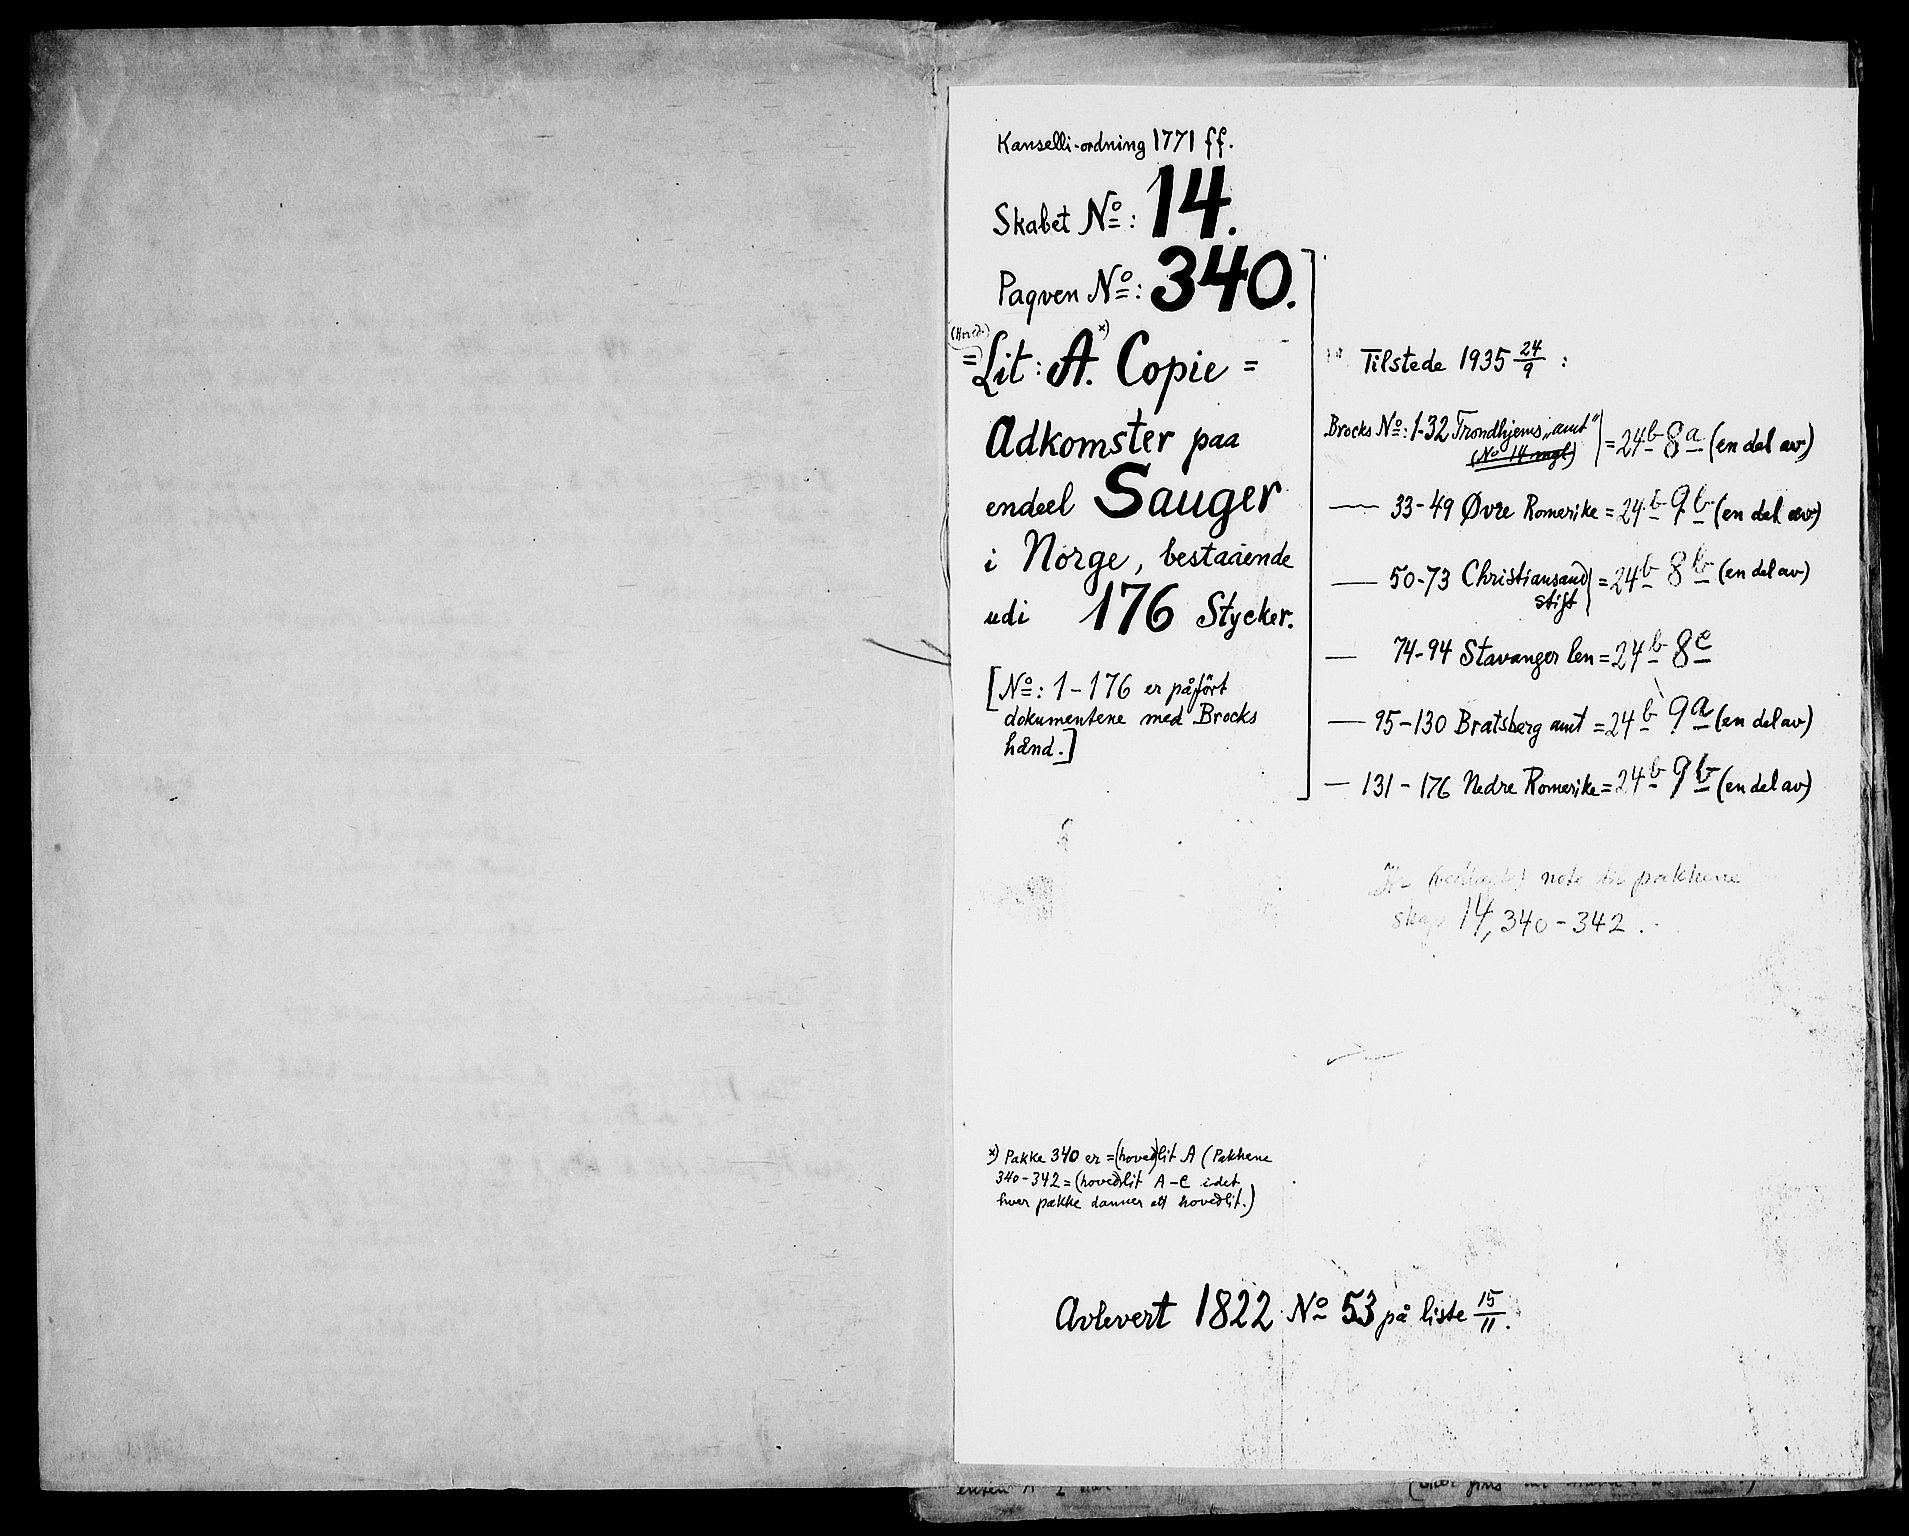 Kanselli-ordning 1771 ff.
Skabet No: 14.
Paqven No: 340.
(Hoved.)
=Lit: A. x) Copie =
Adkomster paa
endeel Sauger
i Norge, bestaaende
udi 176 Stycker.
[No: 1-176 er påført
dokumentene med Brocks
hånd.]
Tilstede 1935 24/9 :
Brocks No: 1-32 Trondhjems „amt" = 24b 8a (en del av)
(No 14 mgl)
— 33-49 Øvre Romerike = 24b 9b (en del av)
— 50-73 Christiansand = 24b 8b (en del av)
stift
— 74-94 Stavanger len = 24b 8c
— 95-130 Bratsberg amt = 24b 9a (en del av)
— 131-176 Nedre Romerike = 24b 9b (en del av)
note pakkene
skap 14, 340-342.
x) Pakke 340 er = (hoved)lit A (Pakkene
340-342 = (hoved)lit A-C idet
hver pakke danner ett hovedlit.)
Avlevert 1822 No 53 på liste 15/11.